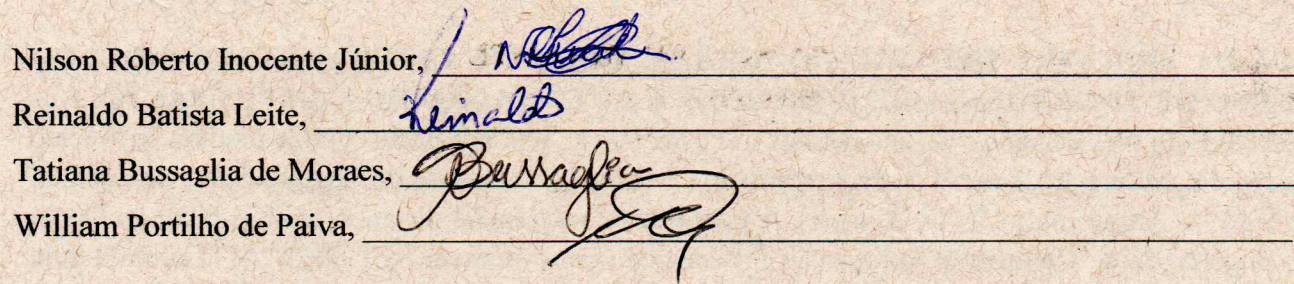 Nilson Roberto Inocente Júnior,
Reinaldo Batista Leite, Reinaldo
Tatiana Bussaglia de Moraes, Bussaglia
William Portilho de Paiva,